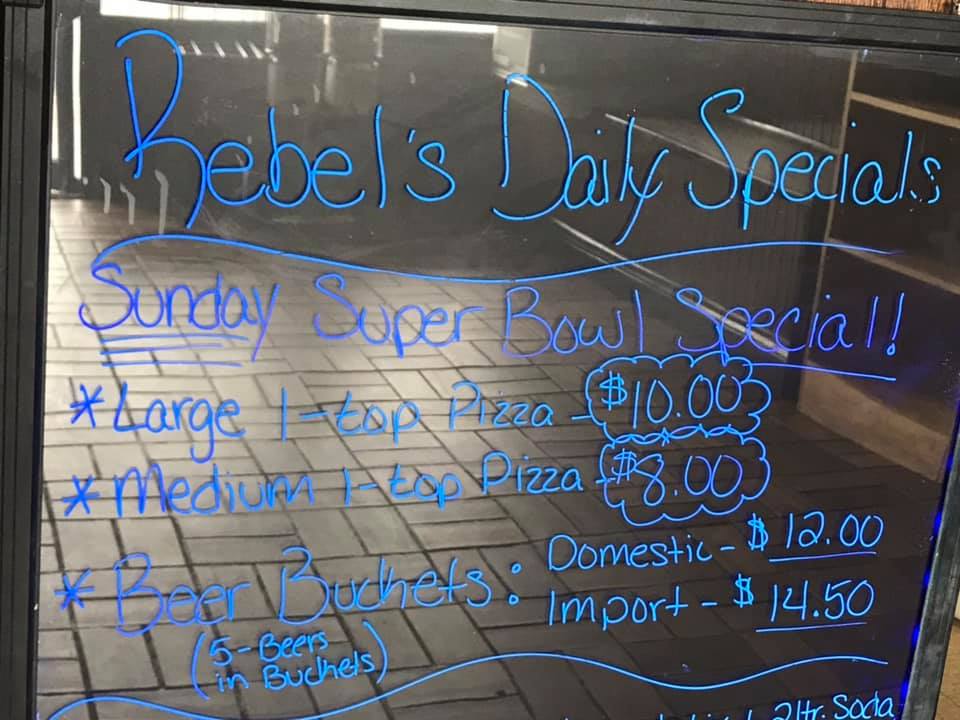 Rebel's Daily Specials
Sunday Super Bowl Special!
* Large 1-top Pizza - $10.00
* Medium 1-top Pizza - $8.00
* Beer Buckets: Domestic - $12.00
Import - $14.50
(5-Beers
in Buckets)
2ltr. Soda